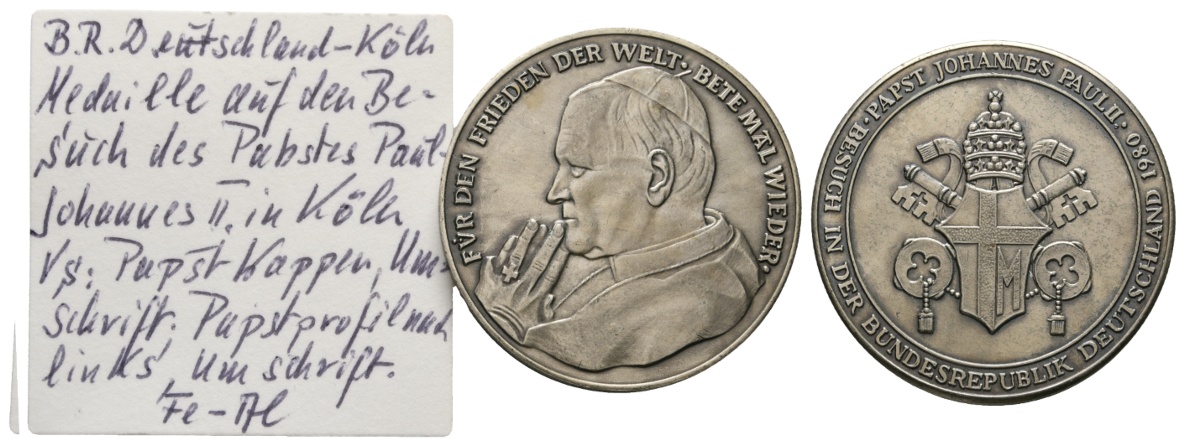 B.R. Deutschland-Köln
Medaille auf den Be-
such des Pabstes Paul-
Johannes II. in Köln
Vs: Papst Kappen, Um-
schrift. Papstprofil nach
links, Umschrift.
Fe-Al
FÜR DEN FRIEDEN DER WELT· BETE MAL WIEDER·
BESUCH IN DER BUNDESREPUBLIK DEUTSCHLAND 1980·
PAPST JOHANNES PAUL II·
M